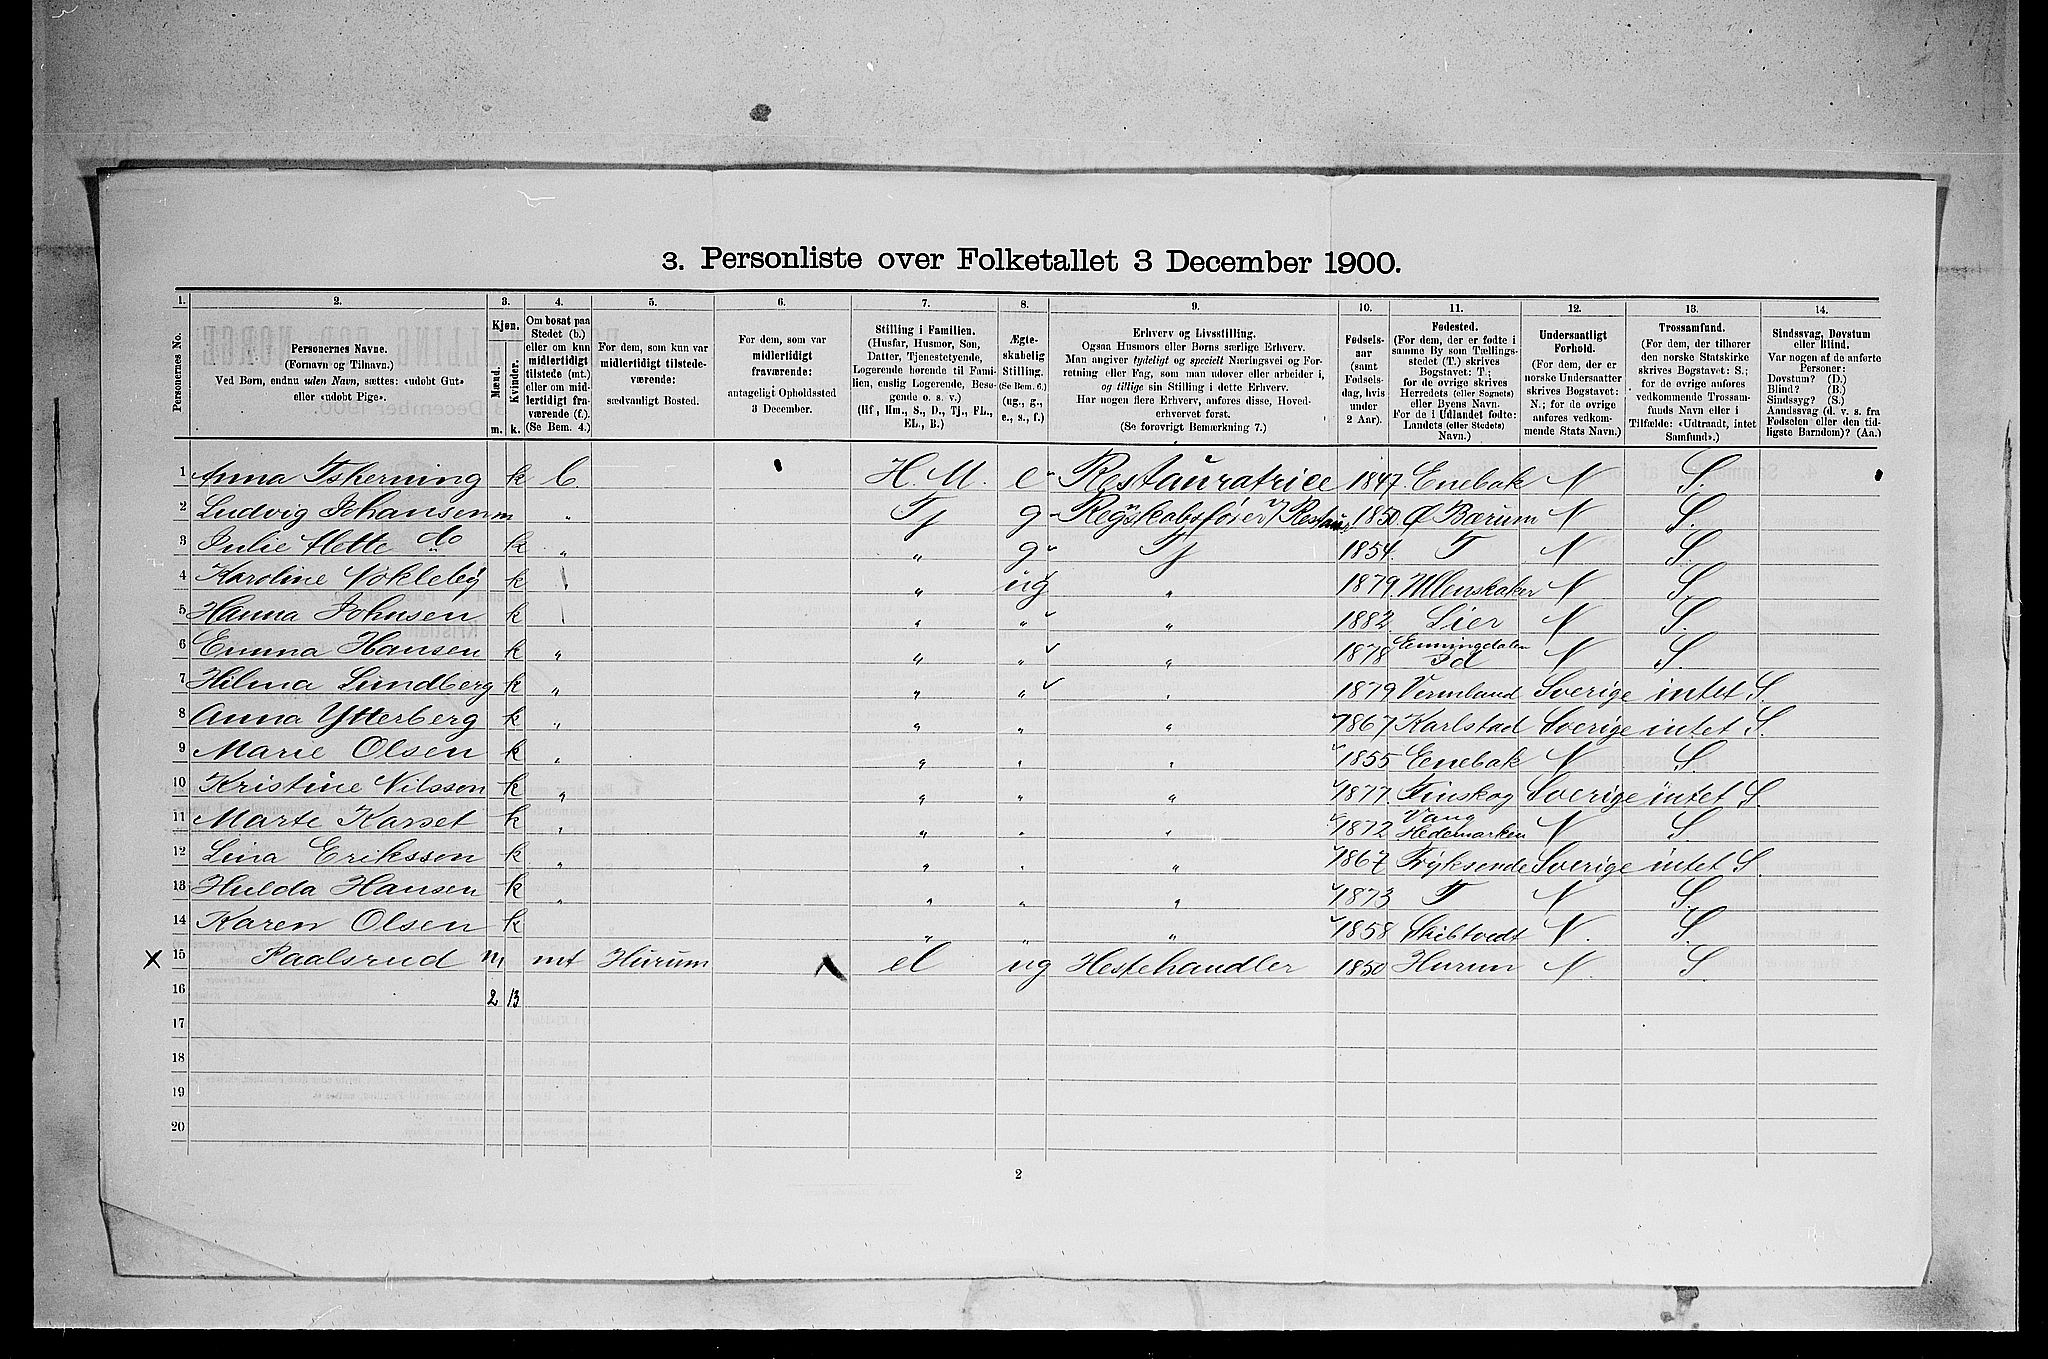 3. Personliste over Folketallet 3 December 1900.
1. 2. 3. 4. 5. 6. 7. 8. 9. 10. 11. 12. 13. 14.
Personernes No.
Personernes Navne.
(Fornavn og Tilnavn.)
Ved Børn, endnu uden Navn, sættes: «udøbt Gut»
eller «udøbt Pige».
Kjøn.
Mænd.
Kvinder.
m. k.
Om bosat paa
Stedet (b.)
eller om kun
midlertidigt
tilstede (mt.)
eller om mid-
lertidigt fra-
værende (f.).
(Se Bem. 4.)
For dem, som kun var
midlertidigt tilstede-
værende:
sædvanligt Bosted.
For dem, som var
midlertidigt
fraværende:
antageligt Opholdssted
3 December.
Stilling i Familien.
(Husfar, Husmor, Søn,
Datter, Tjenestetyende,
Logerende hørende til Fami-
lien, enslig Logerende, Besø-
gende o. s. v.)
(Hf, Hm., S., D., Tj., FL.,
EL., B.)
Ægte-
skabelig
Stilling.
(Se Bem. 6.)
(ug., g.,
e., s., f.)
Erhverv og Livsstilling.
Ogsaa Husmors eller Børns særlige Erhverv.
Man angiver tydeligt og specielt Næringsvei og For-
retning eller Fag, som man udøver eller arbeider i,
og tillige sin Stilling i dette Erhverv.
Har nogen flere Erhverv, anføres disse, Hoved-
erhvervet først.
(Se forøvrigt Bemærkning 7.)
Fødsels-
aar
(samt
Fødsels-
dag, hvis
under
2 Aar).
Fødested.
(For dem, der er fødte i
samme By som Tællings-
stedet (T.) skrives
Bogstavet: T.;
for de øvrige skrives
Herredets (eller Sognets)
eller Byens Navn.
For de i Udlandet fødte:
Landets (eller Stedets)
Navn.)
Undersaatligt
Forhold.
(For dem, der er
norske Undersaatter
skrives Bogstavet:
N.; for de øvrige
anføres vedkom-
mende Stats Navn.)
Trossamfund.
(For dem, der tilhører
den norske Statskirke
skrives Bogstavet: S.;
for de øvrige anføres
vedkommende Trossam-
funds Navn eller i
Tilfælde: «Udtraadt, intet
Samfund».)
Sindssvag, Døvstum
eller Blind.
Var nogen af de anførte
Personer:
Døvstum? (D.)
Blind? (B.)
Sindssyg? (S.)
Aandssvag (d. v. s. fra
Fødselen eller den tid-
ligste Barndom)? (Aa.)
1 Anna Tsherning k b H. M. e Restauratrice 1847. Enebak N S.
2 Ludvig Johansen m " Tj g Regskabsfører v/ Restau. 1850. Ø Bærum N S.
3 Julie Mette do k " " g Tj 1854. T N S.
4 Karoline Nökleby k " ug " 1879. Ullensaker N S.
5 Hanna Johnsen k " " " 1882 Lier N S.
6 Emma Hansen k " " " " 1878 Enningdalen Id N S
7 Hilma Lundberg k " " " " 1879 Vermland Sverige intet S.
8 Anna Ytterberg k " " " " 1867 Karlstad Sverige intet S.
9 Marie Olsen k " " " " 1855 Enebak N S.
10 Kristine Nilsson k " " " " 1877. Finskog Sverige intet S.
11 Marte Kasset k " " " " 1872 Vang Hedemarken N S
12 Lina Eriksson k " " " " 1867 Fryksende Sverige intet S.
13 Hulda Hansen k " " " " 1873 T N S.
14 Karen Olsen k " " " 1858 Skibtvedt N. S.
x 15 Paalsrud m mt Hurum el ug Hestehandler 1850 Hurum N. S
16 2 13
17
18
19
20
2